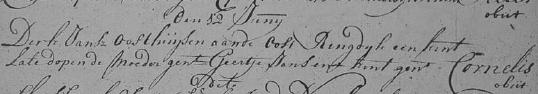 obiit
den 12 Juny
Derk Jansz Oosthuijsen aande Oost Ringdyk een kint
Late dopen de Moeder gent Geertje Jans en t kint gent Cornelis
obiit